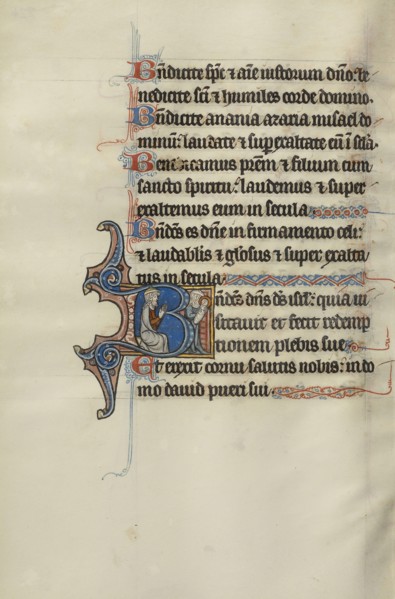 Bn̄dicite sp̄c ⁊ aīe iustorum dn̄o: be
nedicite sc̄i ⁊ humiles corde domino.
Bn̄dicite anania azaria misael do
minū: laudate ⁊ suꝑexaltate eū ī sc̄la.
Benedicamus pr̄em ⁊ filium cum
sancto spiritu: laudemus ⁊ super
exaltemus eum in secula
Bn̄dc̄s es dn̄e in firmamento celi:
⁊ laudabilis ⁊ gl̄osus ⁊ super exalta
tus in secula
Bn̄dc̄s dn̄s ds̄ isrl̄: quia ui
sitauit et fecit redemp
tionem plebis sue
Et erexit cornu salutis nobis: in do
mo dauid pueri sui.